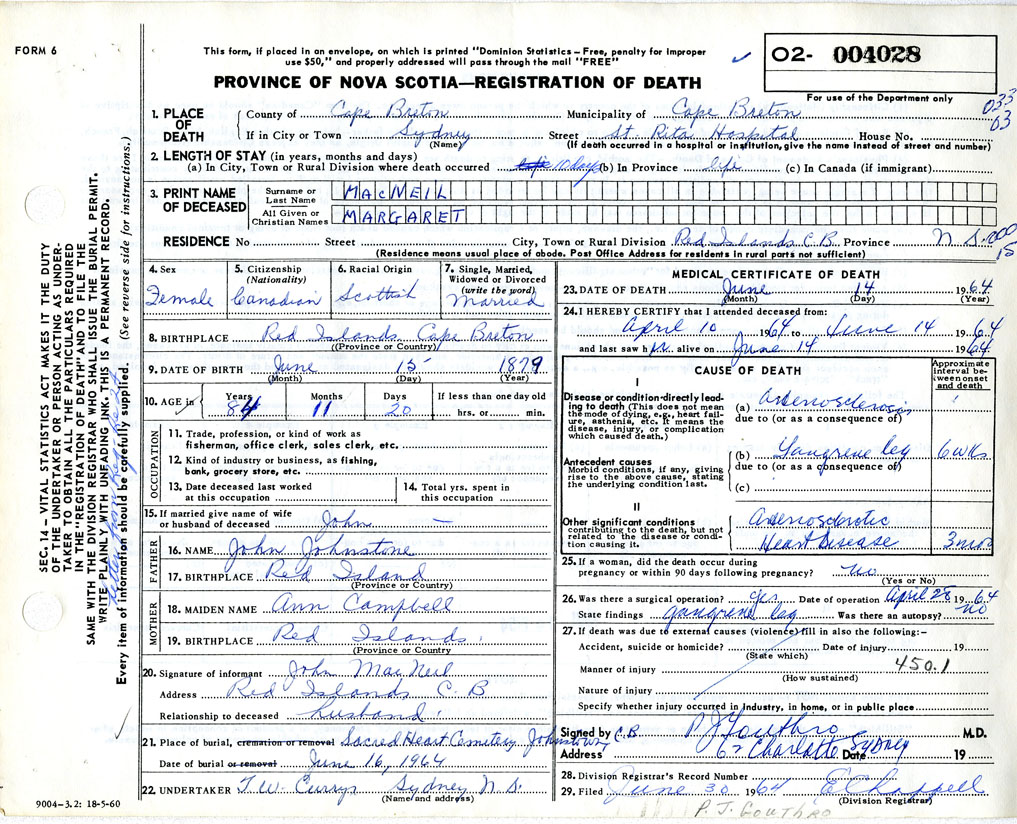 FORM 6
This form, if placed in an envelope, on which is printed "Dominion Statistics – Free, penalty for improper
use $50," and properly addressed will pass through the mail "FREE"
✓
O2- 004028
PROVINCE OF NOVA SCOTIA—REGISTRATION OF DEATH
For use of the Department only
033
03
1. PLACE OF DEATH
County of Cape Breton Municipality of Cape Breton
If in City or Town Sydney Street St. Rita Hospital House No.
(Name) (If death occurred in a hospital or institution, give the name instead of street and number)
2. LENGTH OF STAY (in years, months and days)
(a) In City, Town or Rural Division where death occurred life 10 days (b) In Province life (c) In Canada (if immigrant)
3. PRINT NAME OF DECEASED
Surname or Last Name MACNEIL
All Given or Christian Names MARGARET
RESIDENCE No Street City, Town or Rural Division Red Islands C.B Province N S.
(Residence means usual place of abode. Post Office Address for residents in rural parts not sufficient)
200
15
4. Sex Female
5. Citizenship (Nationality) Canadian
6. Racial Origin Scottish
7. Single, Married, Widowed or Divorced (write the word) Married
8. BIRTHPLACE Red Islands, Cape Breton
(Province or Country)
9. DATE OF BIRTH June 15 1879
(Month) (Day) (Year)
10. AGE in Years 84 Months 11 Days 20 If less than one day old hrs. or min.
OCCUPATION
11. Trade, profession, or kind of work as fisherman, office clerk, sales clerk, etc.
12. Kind of industry or business, as fishing, bank, grocery store, etc.
13. Date deceased last worked at this occupation
14. Total yrs. spent in this occupation
15. If married give name of wife or husband of deceased John —
FATHER
16. NAME John Johnstone
17. BIRTHPLACE Red Island
(Province or Country)
MOTHER
18. MAIDEN NAME Ann Campbell
19. BIRTHPLACE Red Islands
(Province or Country
20. Signature of informant John MacNeil
Address Red Islands C. B
Relationship to deceased husband
21. Place of burial, cremation or removal Sacred Heart Cemetery Johnstown
Date of burial or removal June 16, 1964
22. UNDERTAKER T. W. Curry Sydney N S.
(Name and address)
9004–3.2: 18-5-60
MEDICAL CERTIFICATE OF DEATH
23. DATE OF DEATH June 14 1964
(Month) (Day) (Year)
24. I HEREBY CERTIFY that I attended deceased from:
April 10 1964 to June 14 1964
and last saw her alive on June 14 1964
CAUSE OF DEATH
Approximate interval between onset and death
I
Disease or condition directly leading to death (This does not mean the mode of dying, e.g., heart failure, asthenia, etc. It means the disease, injury, or complication which caused death.)
(a) Arteriosclerosis
due to (or as a consequence of)
Antecedent causes
Morbid conditions, if any, giving rise to the above cause, stating the underlying condition last.
(b) Gangrene leg 6 wks
due to (or as a consequence of)
(c)
II
Other significant conditions contributing to the death, but not related to the disease or condition causing it.
Arteriosclerotic
Heart Disease 3 mos
25. If a woman, did the death occur during pregnancy or within 90 days following pregnancy? no
(Yes or No)
26. Was there a surgical operation? yes Date of operation April 28 1964
State findings gangrene leg Was there an autopsy? no
27. If death was due to external causes (violence) fill in also the following:–
Accident, suicide or homicide? Date of injury 19
(State which)
450.1
Manner of injury
(How sustained)
Nature of injury
Specify whether injury occurred in industry, in home, or in public place
Signed by C.B. P J Gouthro M.D.
Address 62 Charlotte Sydney Date 19
28. Division Registrar's Record Number
29. Filed June 30 1964 E Chappell
(Division Registrar)
P. J. GOUTHRO
SEC. 14 – VITAL STATISTICS ACT MAKES IT THE DUTY
OF THE UNDERTAKER OR PERSON ACTING AS UNDER-
TAKER TO OBTAIN ALL THE PARTICULARS REQUIRED
IN THE "REGISTRATION OF DEATH" AND TO FILE THE
SAME WITH THE DIVISION REGISTRAR WHO SHALL ISSUE THE BURIAL PERMIT.
WRITE PLAINLY WITH UNFADING INK. THIS IS A PERMANENT RECORD.
Every item of information should be carefully supplied. (See reverse side for instructions.)